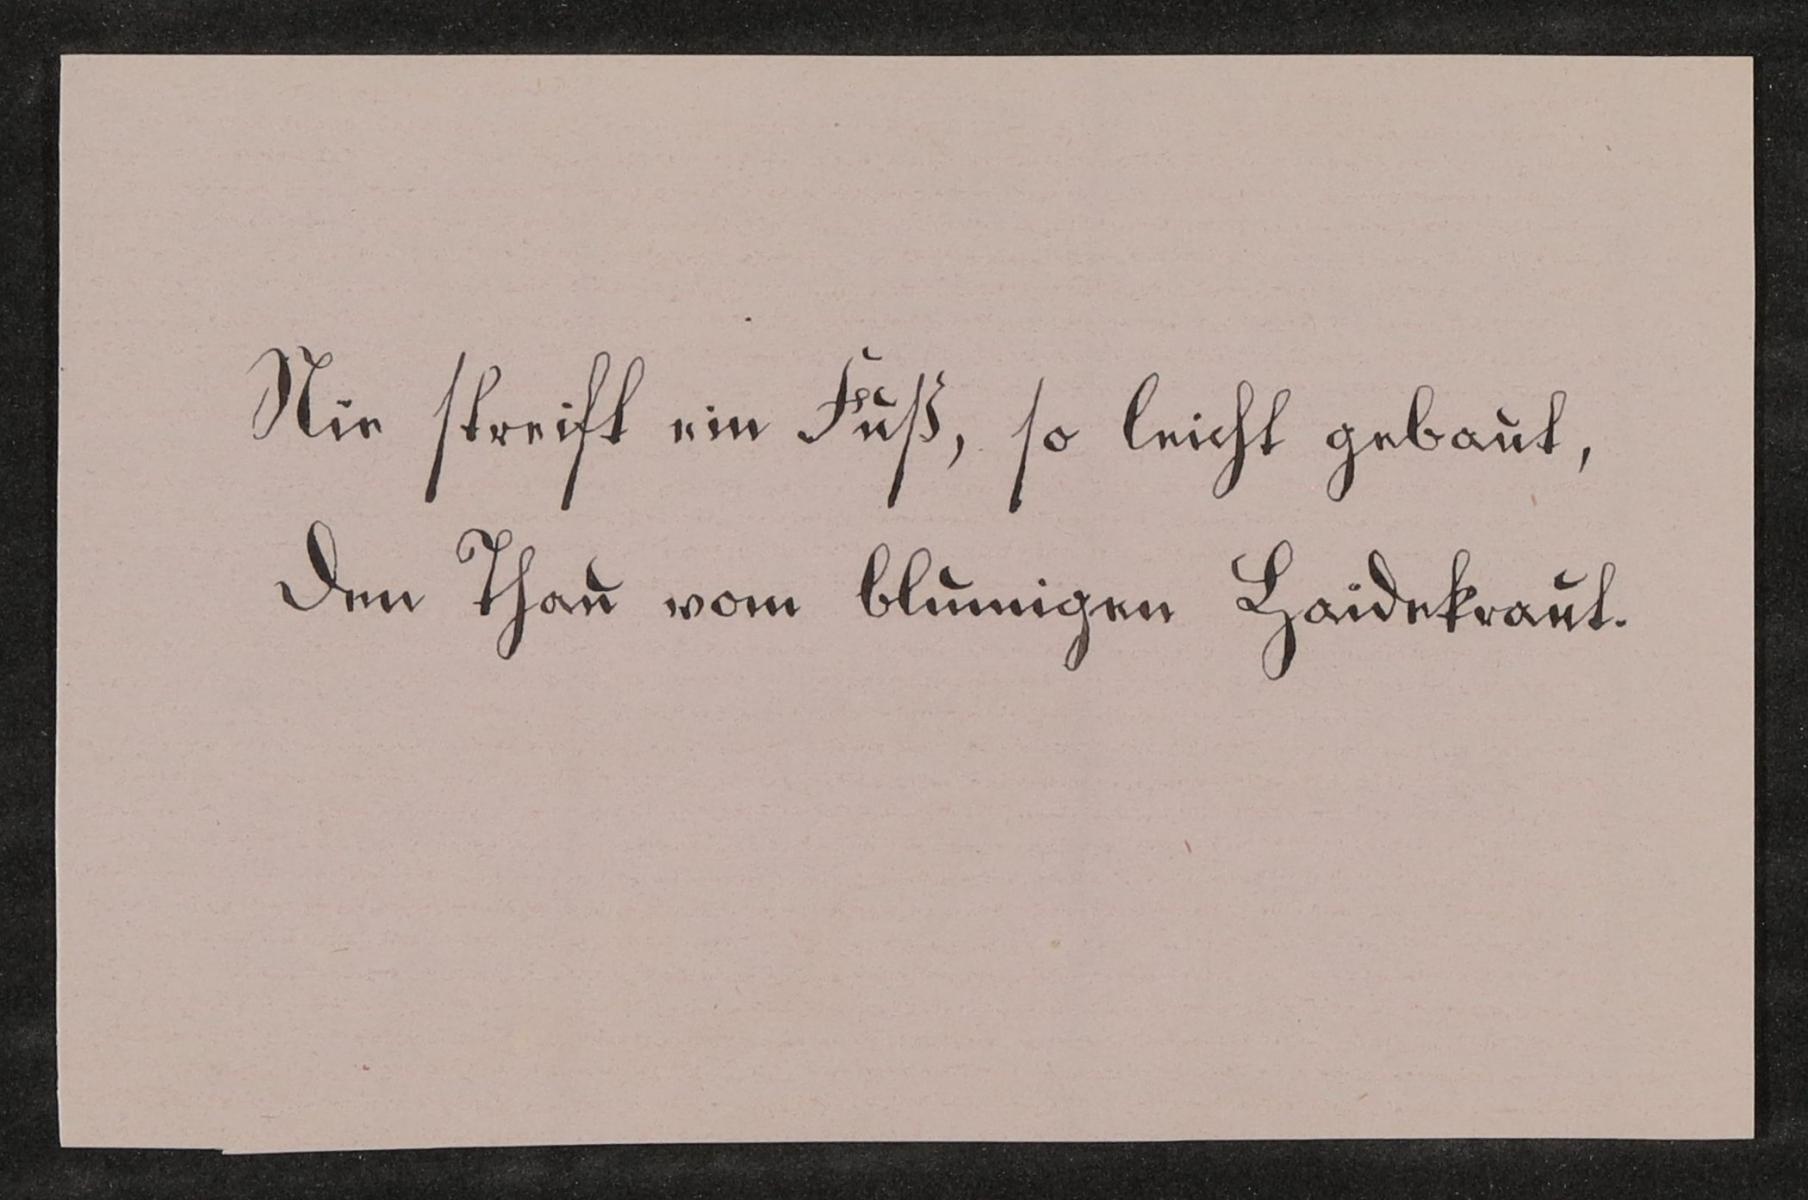 Nie streift ein Fuß, so leicht gebaut,
Den Thau vom blumigen Haidekraut.